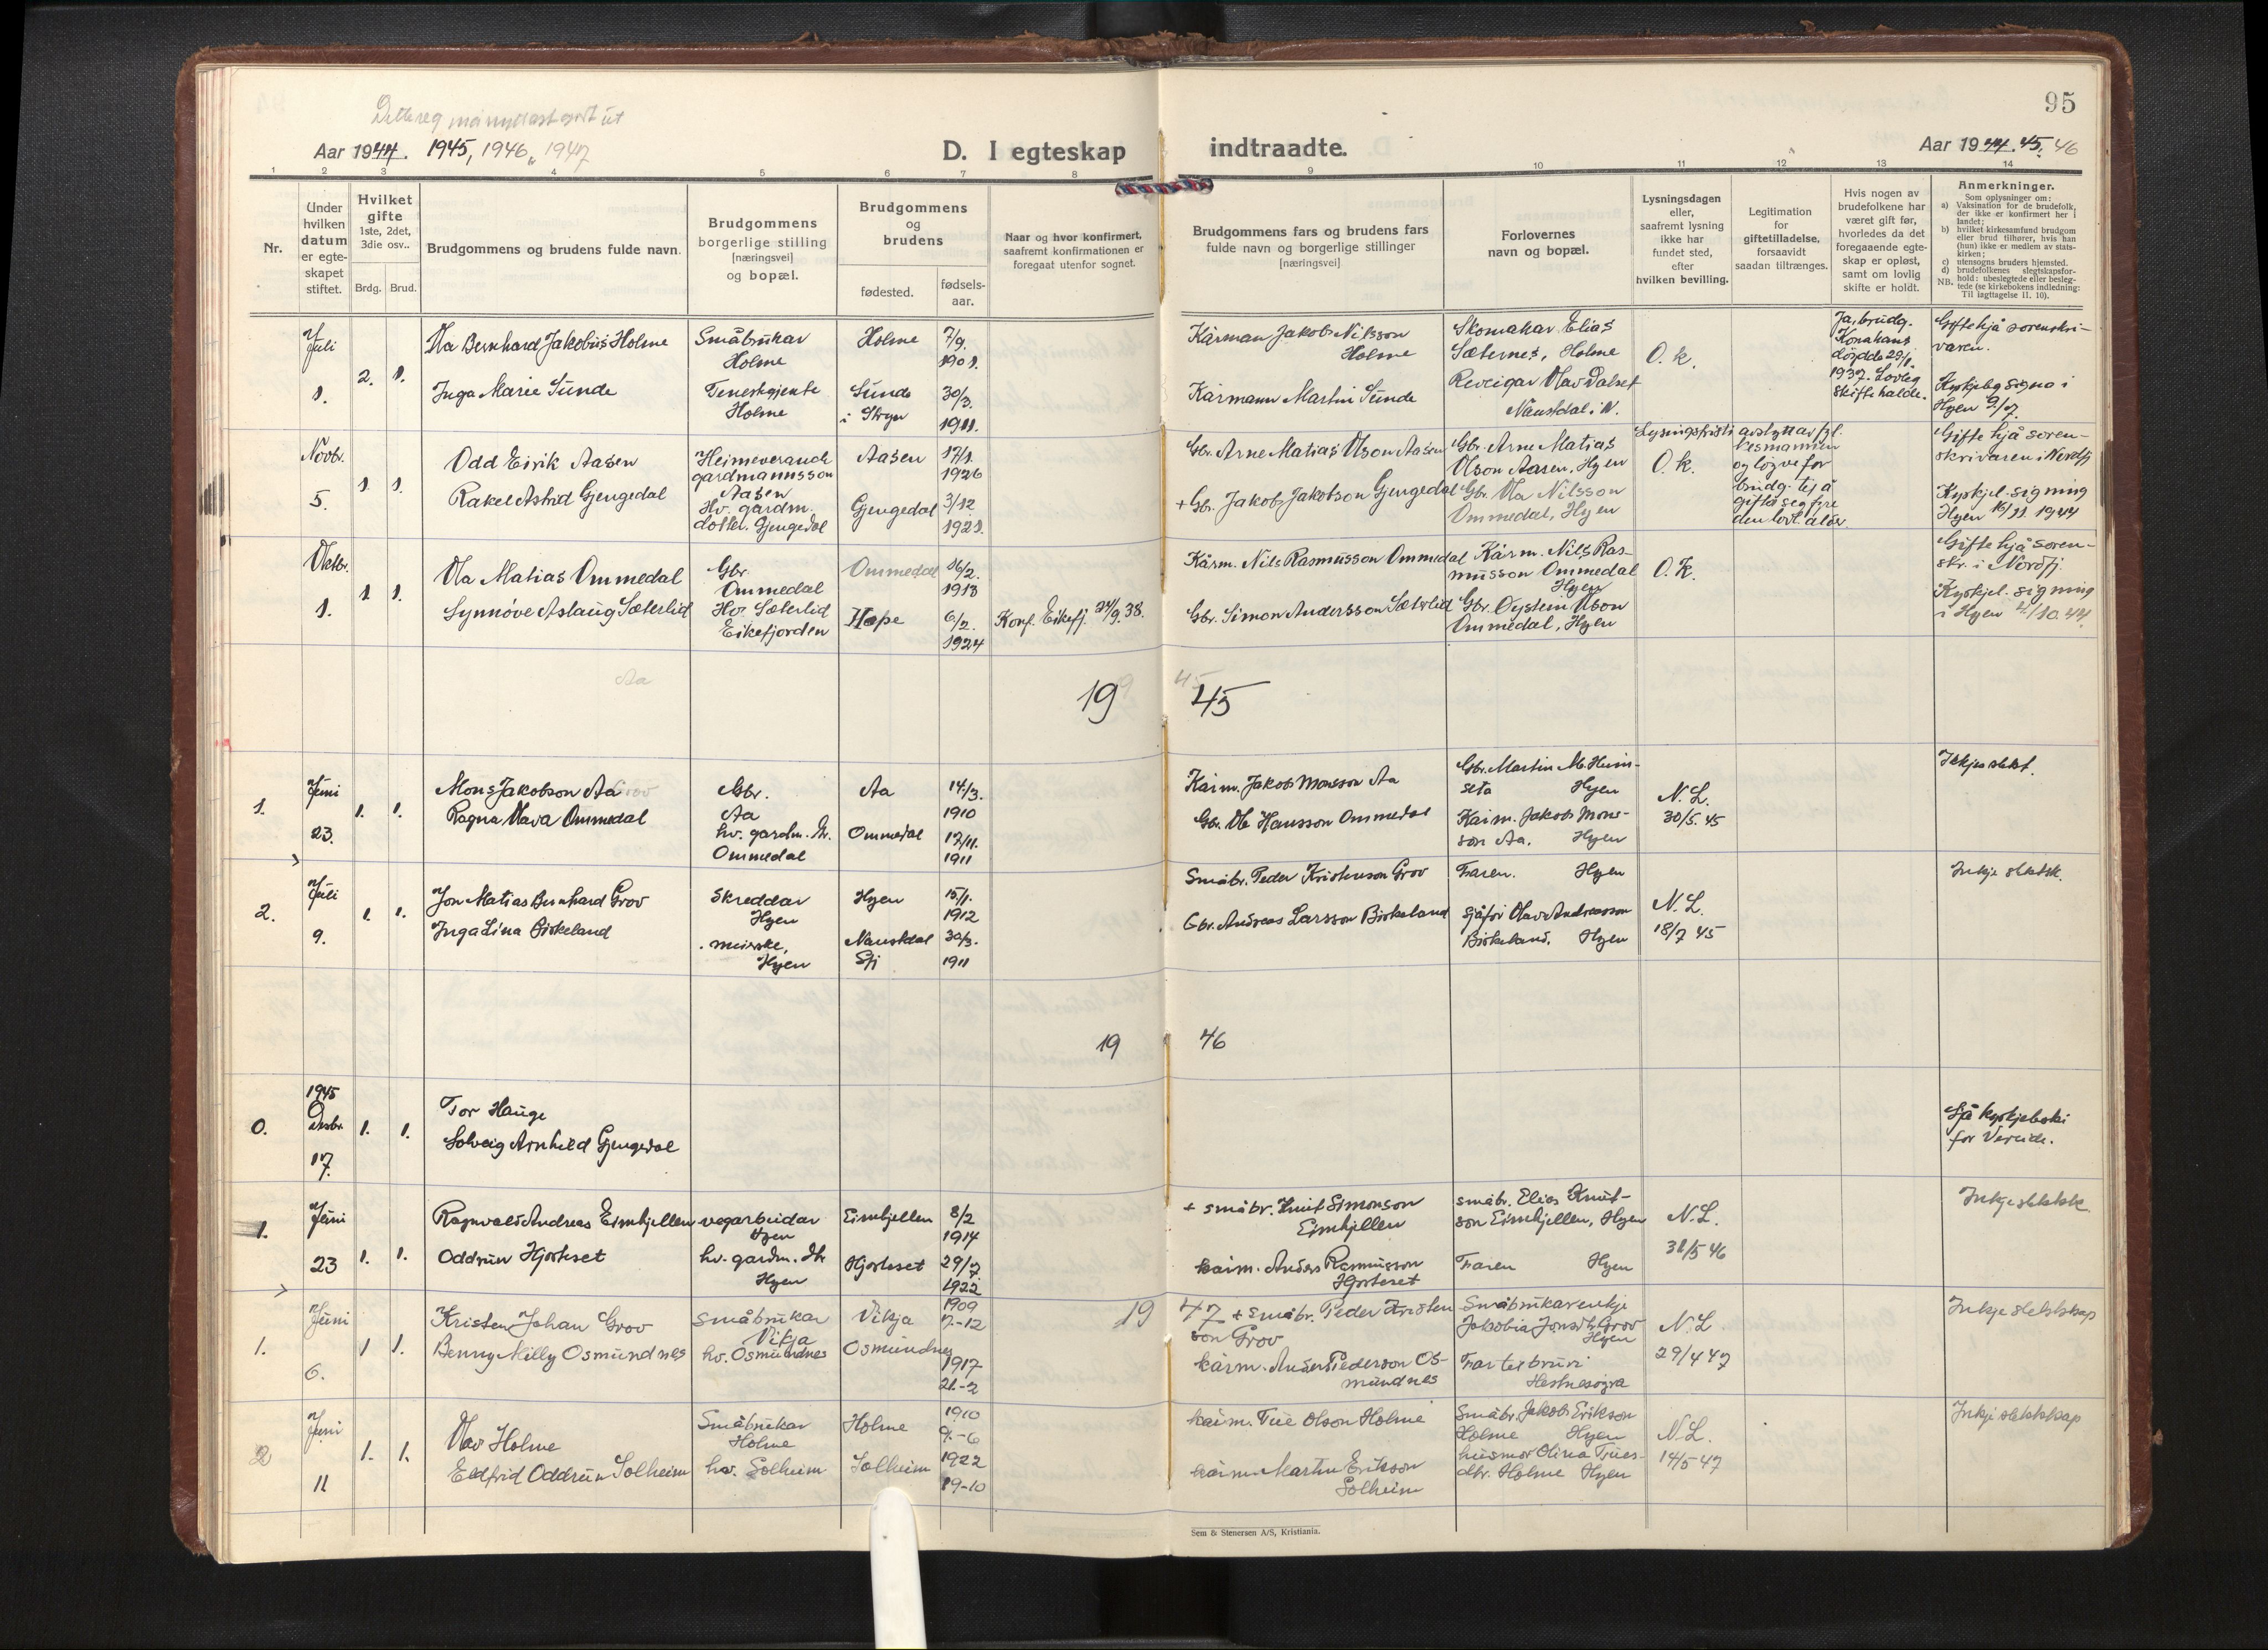 95
Aar 1944. 1945, 1946, 1947
D. I egteskap indtraadte.
Aar 1944. 45. 46
1 2 3 4 5 6 7 8 9 10 11 12 13 14
Nr.
Under
hvilken
datum
er egte-
skapet
stiftet.
Hvilket
gifte
1ste, 2det,
3die osv..
Brdg. Brud.
Brudgommens og brudens fulde navn.
Brudgommens
borgerlige stilling
[næringsvei]
og bopæl.
Brudgommens
og
brudens
fødested.
fødsels-
aar.
Naar og hvor konfirmert,
saafremt konfirmationen er
foregaat utenfor sognet.
Brudgommens fars og brudens fars
fulde navn og borgerlige stillinger
[næringsvei]
Forlovernes
navn og bopæl.
Lysningsdagen
eller,
saafremt lysning
ikke har
fundet sted,
efter
hvilken bevilling.
Legitimation
for
giftetilladelse,
forsaavidt
saadan tiltrænges.
Hvis nogen av
brudefolkene har
været gift før,
hvorledes da det
foregaaende egte-
skap er opløst,
samt om lovlig
skifte er holdt.
Anmerkninger.
Som oplysninger om:
a) Vaksination for de brudefolk,
der ikke er konfirmert her i
landet;
b) hvilket kirkesamfund brudgom
eller brud tilhører, hvis han
(hun) ikke er medlem av stats-
kirken;
c) utensogns bruders hjemsted.
d) brudefolkenes slegtskapsfor-
hold: ubeslegtede eller besleg-
NB. tede (se kirkebokens indledning:
Til iagttagelse II. 10).
Juli
1.
2. 1.
Ola Bernhard Jakobus Holme
Inga Marie Sunde
Småbrukar
Holme
Teneskgjente
Holme
Holme
Sunde
i Stryn
7/9.
1901.
30/3.
1911.
Kårman Jakob Nilsson
Holme
Kårmann Martin Sunde
Skomakar Elias
Sæternes, Holme
Reveigar Olav Dalset
Naustdal i N.
O. k.
Ja, brudg.
Kona hans
døydde 29/1.
1937. Lovleg
skifte halde.
Gifte hjå sorenskri-
varen.
Kyrkjeleg signa i
Hyen 9/7.
Novbr.
5.
1. 1.
Odd Eirik Aasen
Rakel Astrid Gjengedal
Heimeverande
gardmannsson
Aasen
Hv. gardm.
dotter. Gjengedal
Aasen
Gjengedal
17/1.
1926
3/12
1921.
Gbr. Arne Matias Olson Aasen
+ Gbr. Jakob Jakobson Gjengedal
Gbr. Arne Matias
Olson Aasen, Hyen
Gbr. Ola Nilsson
Ommedal, Hyen
Lysningsfristi avstytt av fyl-
kesmannen
og løyve for
brudg. til å
gifta seg fyre
den lovl. alder.
O. k.
Gifte hjå soren-
skrivaren i Nordfj.
Kyrkjel. signing
Hyen 16/11 1944
Oktbr.
1.
1. 1.
Ola Matias Ommedal
Synnøve Aslaug Sæterlid
Gbr.
Ommedal
Hv. Sæterlid
Eikefjorden
Ommedal
Hope
16/2.
1913
6/2.
1924
Konf. Eikefj. 24/9. 38.
Kårm. Nils Rasmusson Ommedal
Gbr. Simon Andersson Sæterlid
Kårm. Nils Ras-
musson Ommedal
Hyen
Gbr. Øystein Olson
Ommedal, Hyen
O. K.
Gifte hjå soren-
skr. i Nordfj.
Kyrkjel. signing
i Hyen 4/10. 44.
Aa
19 45
1.
Juni
23.
1. 1.
Mons Jakobson Aa
Ragna Olava Ommedal
Gbr.
Aa
hv. gardm. dt.
Ommedal
Aa
Ommedal
14/3.
1910
17/11.
1911
Kårm. Jakob Monsson Aa
Gbr. Ole Hansson Ommedal
Gbr. Martin M. Heim-
seta Hyen
Kårm. Jakob Mons-
son Aa. Hyen
N. L.
30/5. 45
Ikkje slekt.
2.
Juli
9.
1. 1.
Jon Matias Bernhard Grov
Inga Lina Birkeland
Skreddar
Hyen
meierske,
Hyen
Hyen
Naustdal
Sfj
15/1.
1912
30/3.
1911
Småbr. Peder Kristenson Grov
Gbr. Andreas Larsson Birkeland
Faren. Hyen
Sjåfør Olav Andreasson
Birkeland, Hyen
N. L.
18/7 45
Inkje slektsk.
19 46
0.
1945
Desbr.
17.
1. 1.
Tor Hauge
Solveig Arnhild Gjengedal
Sjå kyrkjeboki
for Vereide.
1.
Juni
23
1. 1.
Ragnvald Andreas Eimhjellen
Oddrun Hjorteset
vegarbeidar
Hyen
hv. gardm. dtr
Hyen
Eimhjellen
Hjorteset
8/2
1914
29/7
1922
+ småbr. Knut Simonson
Eimhjellen
kårm. Anders Rasmusson
Hjorteset
småbr. Elias Knut-
son Eimhjellen, Hyen
Faren Hyen
N. L.
31/5 46
Inkje slektsk.
19 47
1.
Juni
6.
1 1.
Kristen Johan Grov
Benny Milly Osmundnes
Småbrukar
Vikja
hv. Osmundnes
Vikja
Osmundnes
1909
7-12
1917
21-2
+ Småbr. Peder Kristen
son Grov
kårm. Anders Pederson Os-
mundnes
Småbrukarenkje
Jakobia Jonsdtr. Grov
Hyen
Far til bruri
Hestnesøyra
N. L
29/4 47
Inkje slektskap
2
Juni
11
1. 1.
Olav Holme
Eldfrid Oddrun Solheim
Småbrukar
Holme
hv. Solheim
Holme
Solheim
1910
9-6
1922
19-10
kårm. Tue Olson Holme
kårm. Martin Erikson
Solheim
Småbr. Jakob Erikson
Holme Hyen
husmor Olina Tues-
dtr. Holme Hyen
N. L.
14/5 47
Inkje slektskap
Sem & Stenersen A/S, Kristiania.